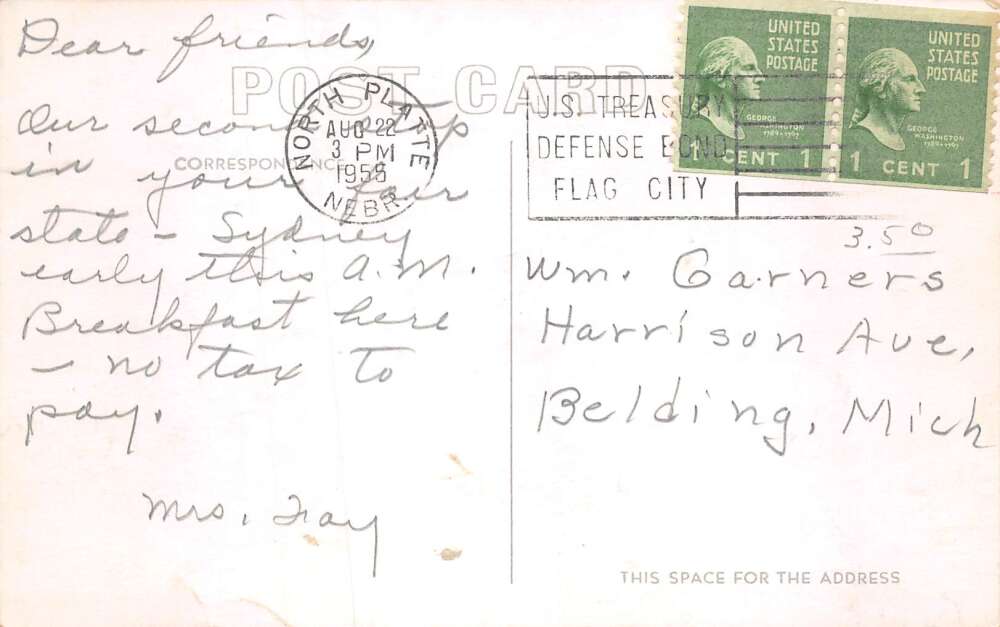 Dear friends,
Our second stop
in your fair
state - Sydney
early this A.M.
Breakfast here
- no tax to
pay.
Mrs. Fay
POST CARD
CORRESPONDENCE
NORTH PLATTE
AUG 22
3 PM
1956
NEBR.
U.S. TREASURY
DEFENSE BOND
FLAG CITY
UNITED
STATES
POSTAGE
GEORGE
WASHINGTON
1789-1797
1 CENT 1
UNITED
STATES
POSTAGE
GEORGE
WASHINGTON
1789-1797
1 CENT 1
3.50
Wm. Garners
Harrison Ave,
Belding, Mich
THIS SPACE FOR THE ADDRESS